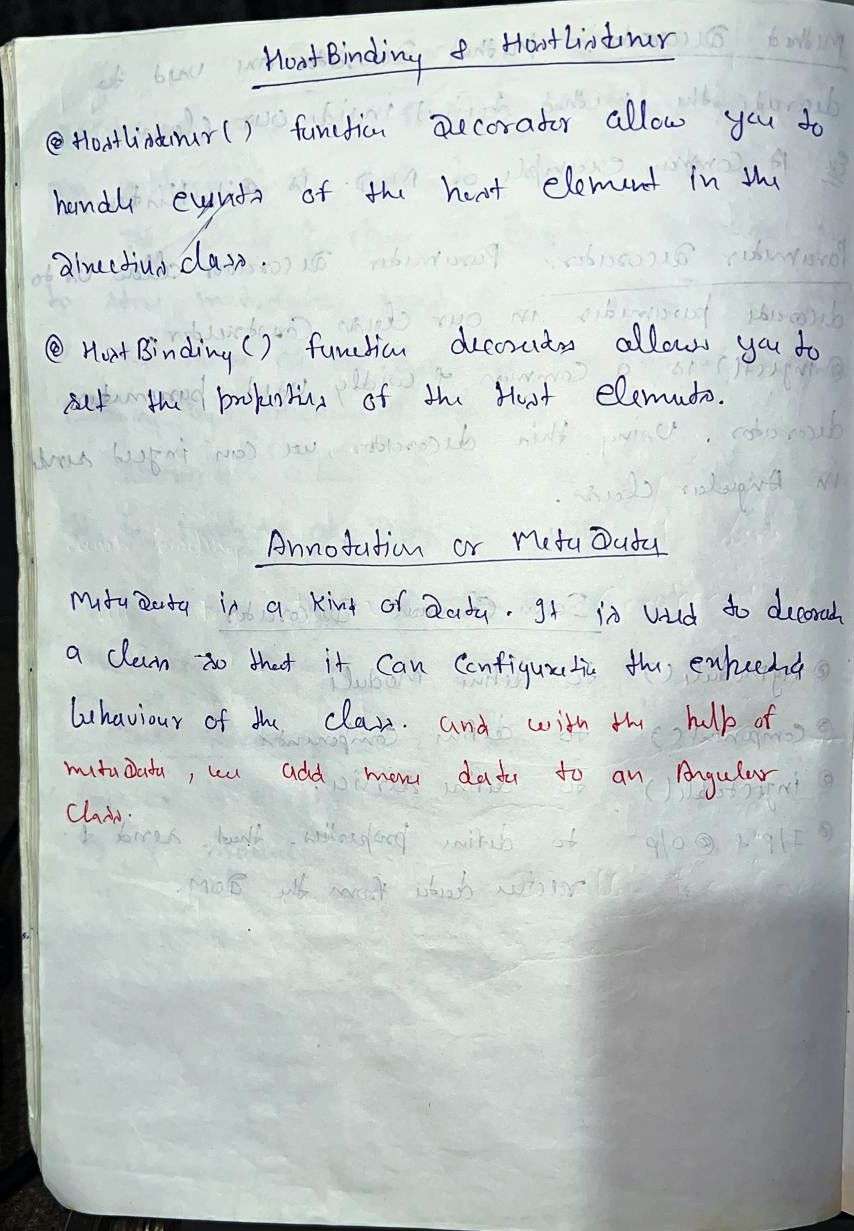 HostBinding & HostListener
@ HostListener() function Decorator allow you to
handle events of the host element in the
Directive class.
@ HostBinding() function decorator allows you to
set the properties of the Host elements.
Annotation or MetaData
MetaData is a kind of Data. It is used to decorate
a class so that it can configuratie the expected
behaviour of the class. and with the help of
metaData, we add more data to an Angular
Class.